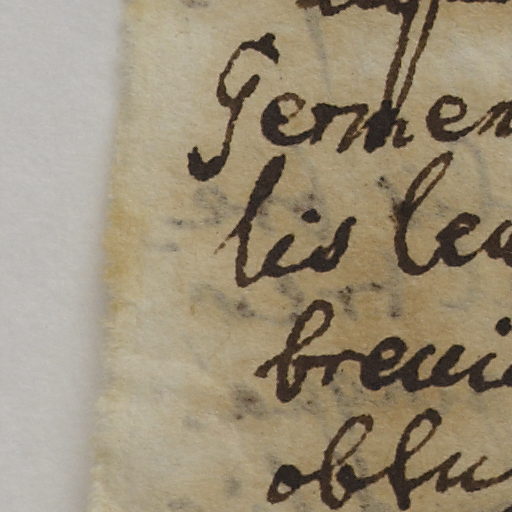 Germen
lis lea
breui
obtu